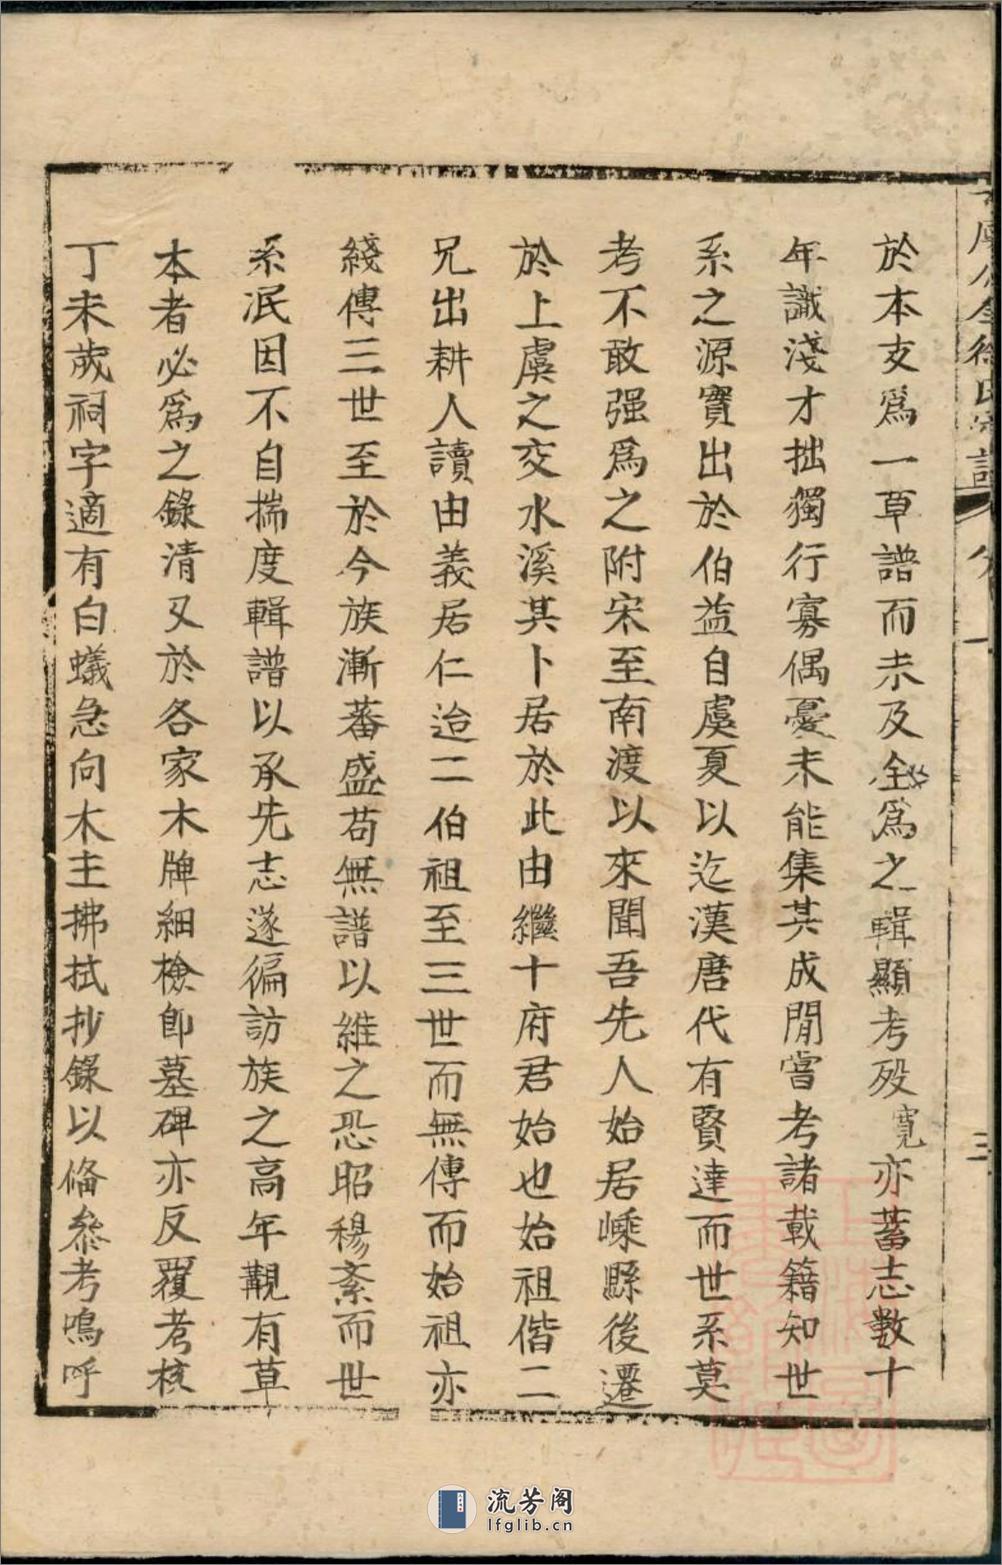 於本支爲一草譜而未及全爲之輯顯考歿寬亦蓄志數十
年識淺才拙獨行寡偶憂未能集其成閒嘗考諸載籍知世
系之源實出於伯益自虞夏以迄漢唐代有賢達而世系莫
考不敢强爲之附宋至南渡以來聞吾先人始居嵊縣後遷
於上虞之交水溪其卜居於此由繼十府君始也始祖偕二
兄出耕人讀由義居仁迨二伯祖至三世而無傳而始祖亦
綫傳三世至於今族漸蕃盛苟無譜以維之恐昭穆紊而世
系泯因不自揣度輯譜以承先志遂徧訪族之高年覩有草
本者必爲之錄清又於各家木牌細檢卽墓碑亦反覆考核
丁未歲祠宇適有白蟻急向木主拂拭抄錄以俻叅考嗚呼
流芳阁
lfglib.cn